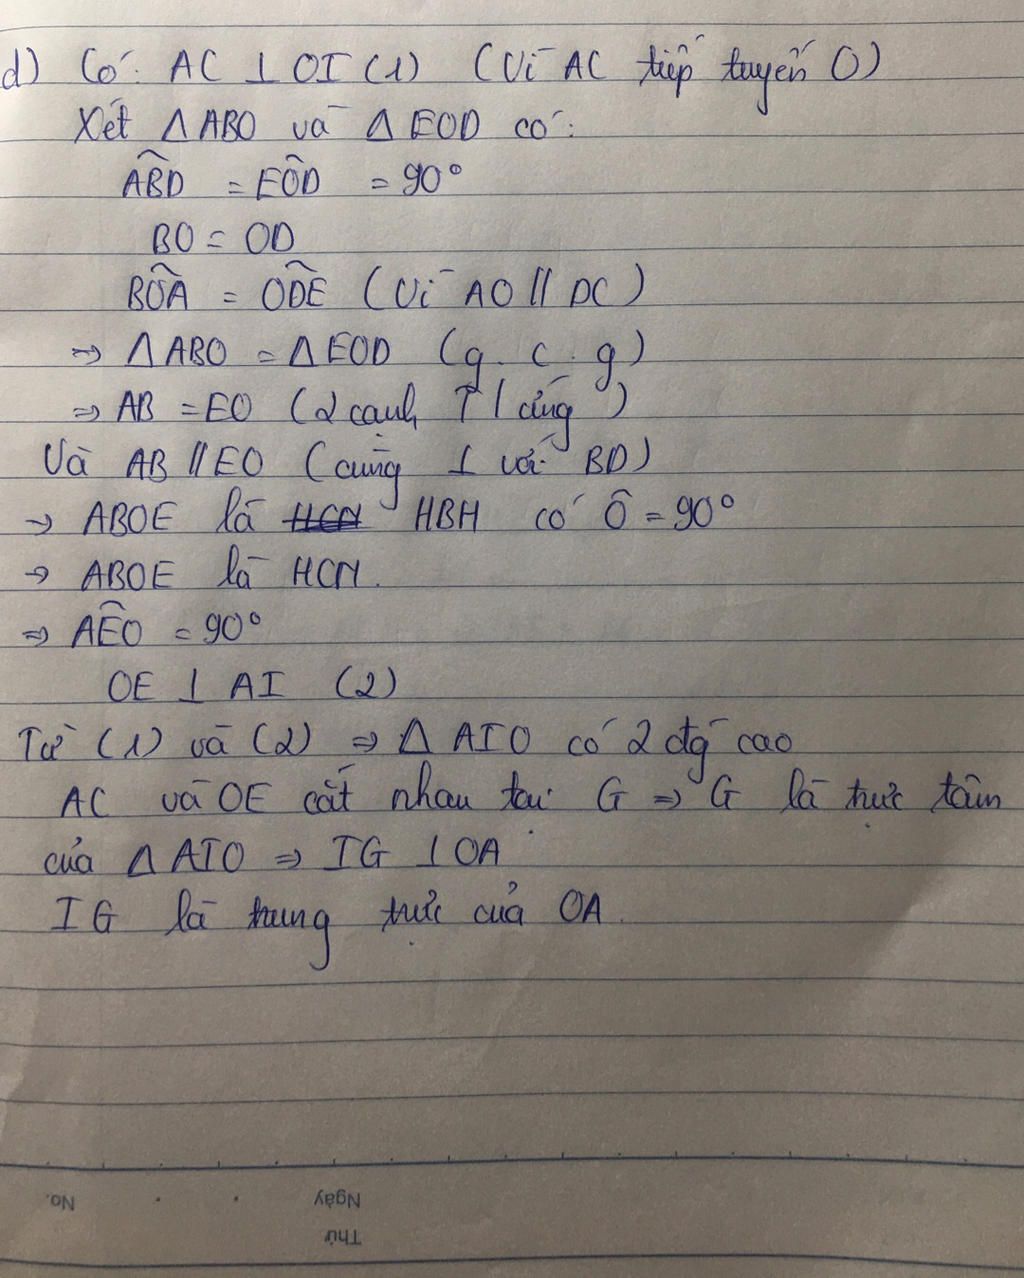 d) Có: AC ⊥ OI (1) (Vì AC tiếp tuyến O)
Xét Δ ABO và Δ EOD có:
ABD = EOD = 90°
BO = OD
BOA = ODE (Vì AO // DC)
=> Δ ABO = Δ EOD (g.c.g)
=> AB = EO (2 cạnh T/ứng)
Và AB // EO (cùng ⊥ với BD)
→ ABOE là HCN HBH có Ô = 90°
→ ABOE là HCN.
=> AEO = 90°
OE ⊥ AI (2)
Từ (1) và (2) => Δ AIO có 2 đg cao
AC và OE cắt nhau tại G => G là trực tâm
của Δ AIO => IG ⊥ OA
IG là trung trực của OA.
No.
Ngày
Thứ